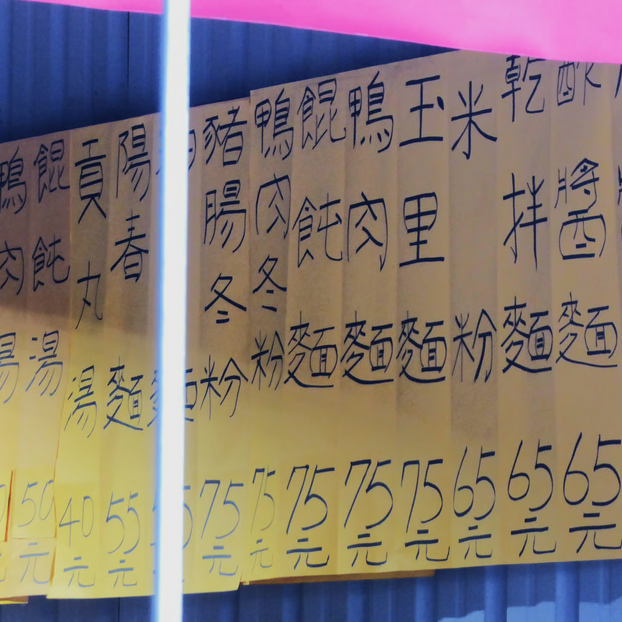 酢醬麵65元
乾拌麵65元
米粉65元
玉里麵75元
鴨肉麵75元
餛飩麵75元
鴨肉冬粉75元
豬腸冬粉75元
麵5元
陽春麵55元
貢丸湯40元
餛飩湯50元
鴨肉湯元